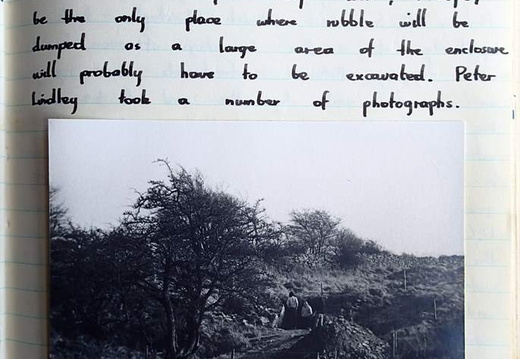 be the only place where rubble will be
dumped as a large area of the enclosure
will probably have to be excavated. Peter
Lindley took a number of photographs.